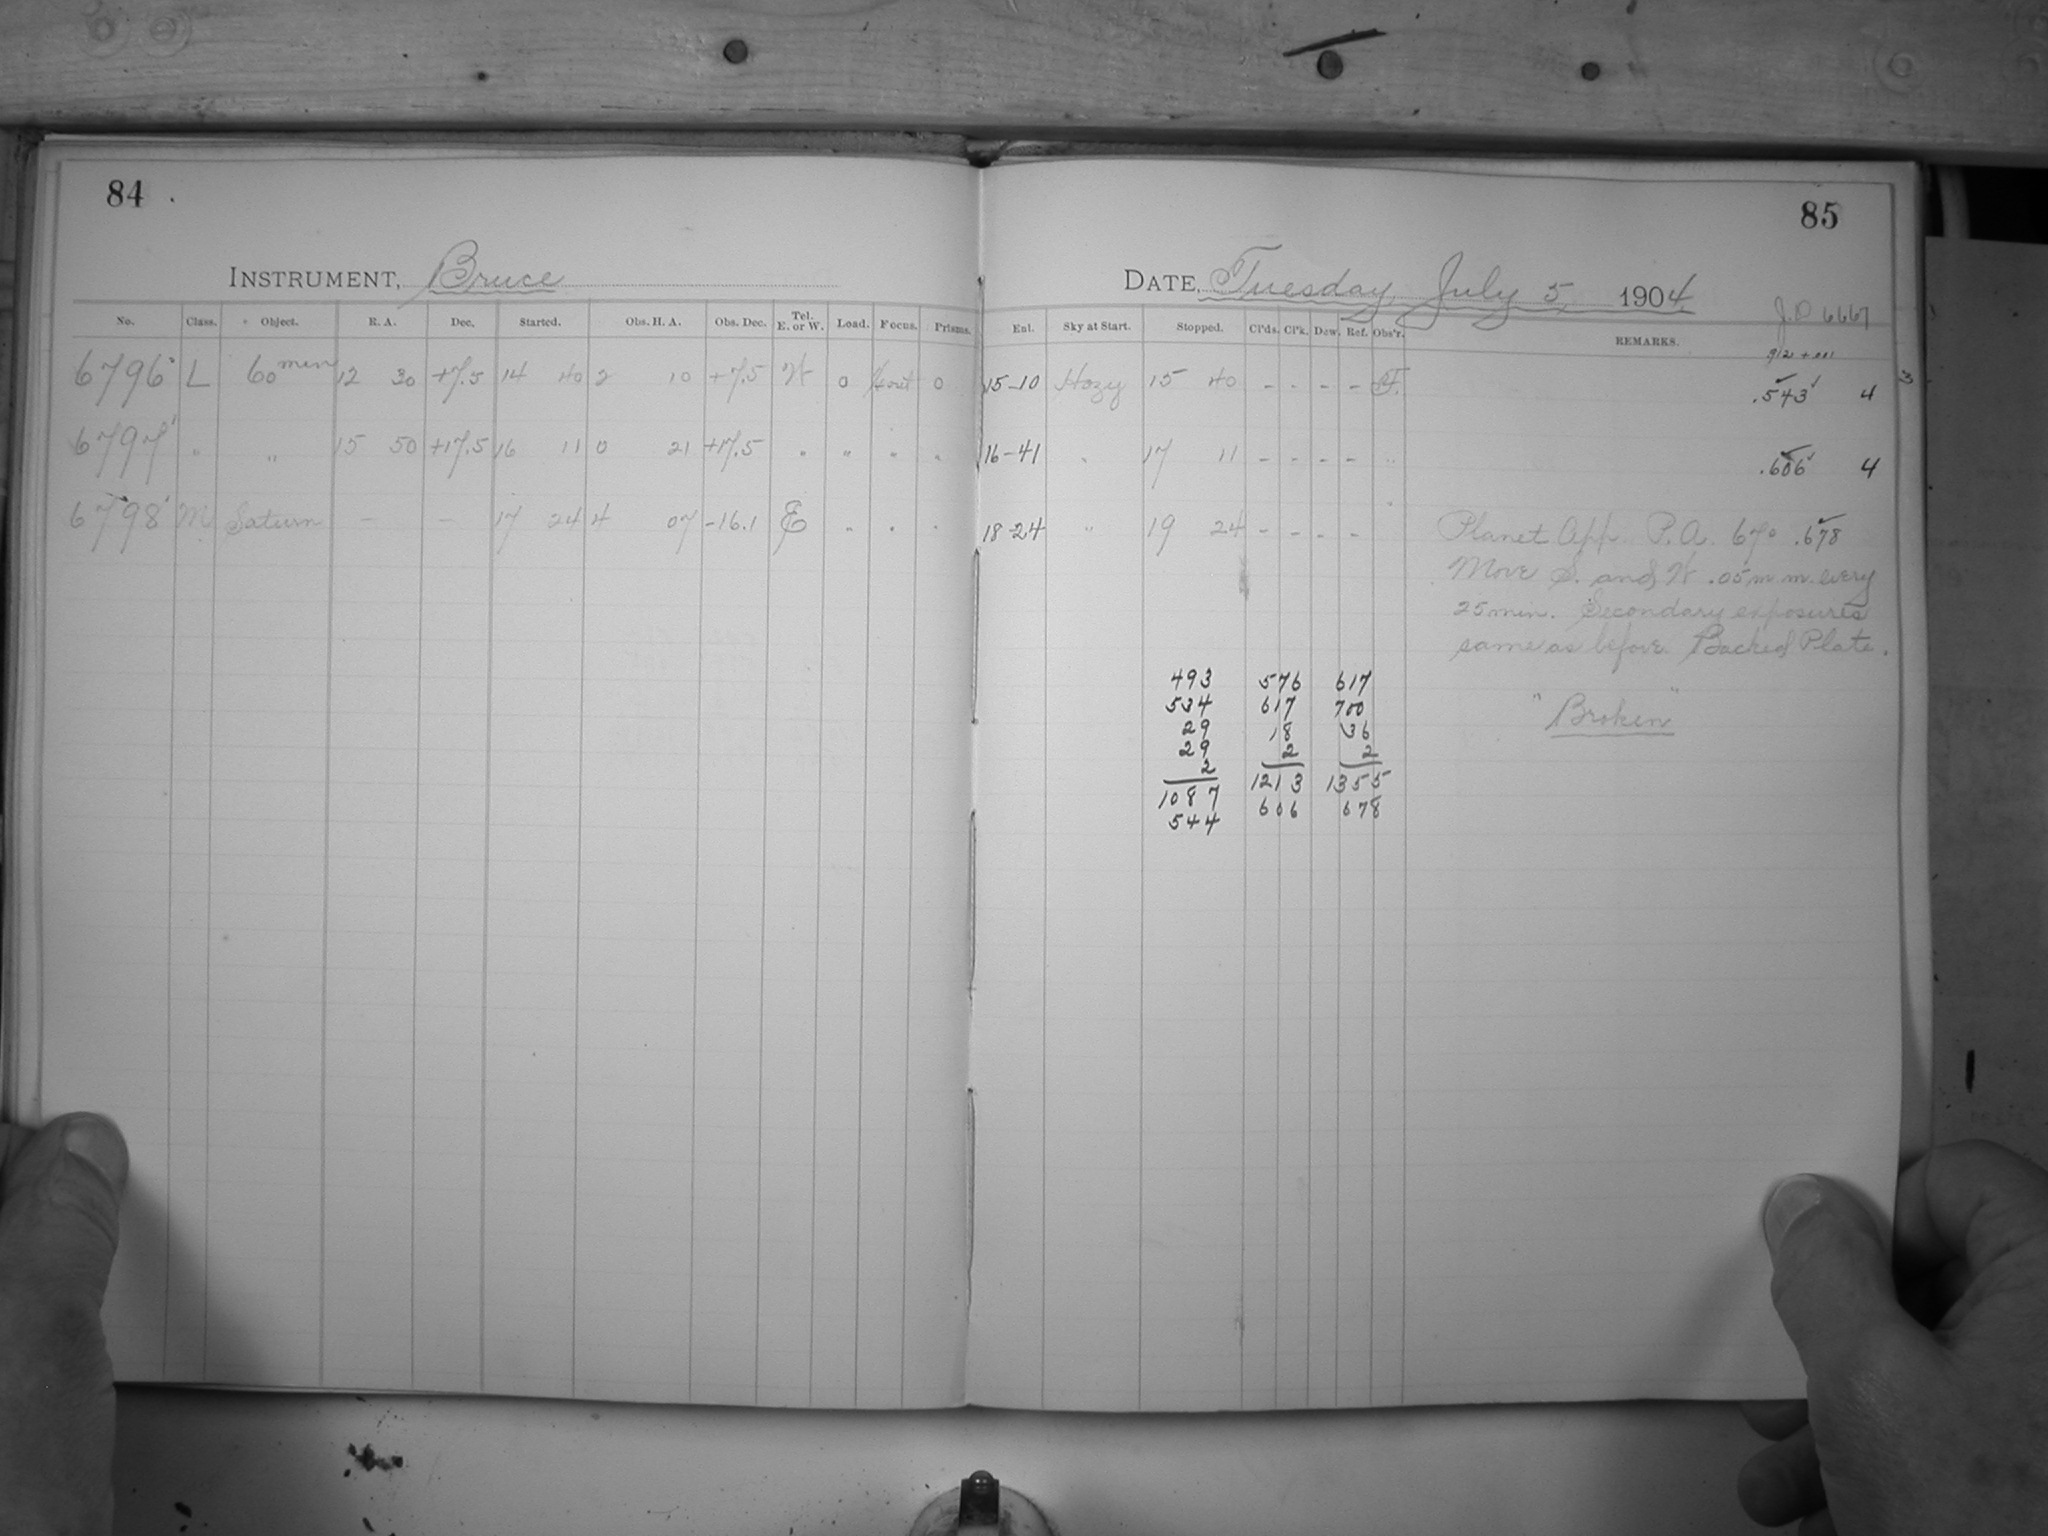 84
85
INSTRUMENT, Bruce
DATE, Tuesday, July 5, 1904
J.D 6667
No. Class. Object. R. A. Dec. Started. Obs. H. A. Obs. Dec. Tel. E. or W. Load. Focus. Prisms. Enl. Sky at Start. Stopped. Cl'ds. Cl'k. Dew. Ref. Obs'r. REMARKS.
.912 + .001
6796 L 60 min 12 30 +7.5 14 40 2 10 +7.5 W 0 0 15-10 Hazy 15 40 - - - - F. .543 4
3
6797 " " 15 50 +17.5 16 11 0 21 +17.5 " " " " 16-41 " 17 11 - - - - " .606 4
6798 M Saturn - - 17 24 4 07 -16.1 E " " " 18-24 " 19 24 - - - - " Planet App. P.A. 67° .678
Move S. and W .05 m.m. every
25 min. Secondary exposures
same as before. Backed Plate.
"Broken"
493 576 617
534 617 700
29 18 36
29 2 2
2
1087 1213 1355
544 606 678